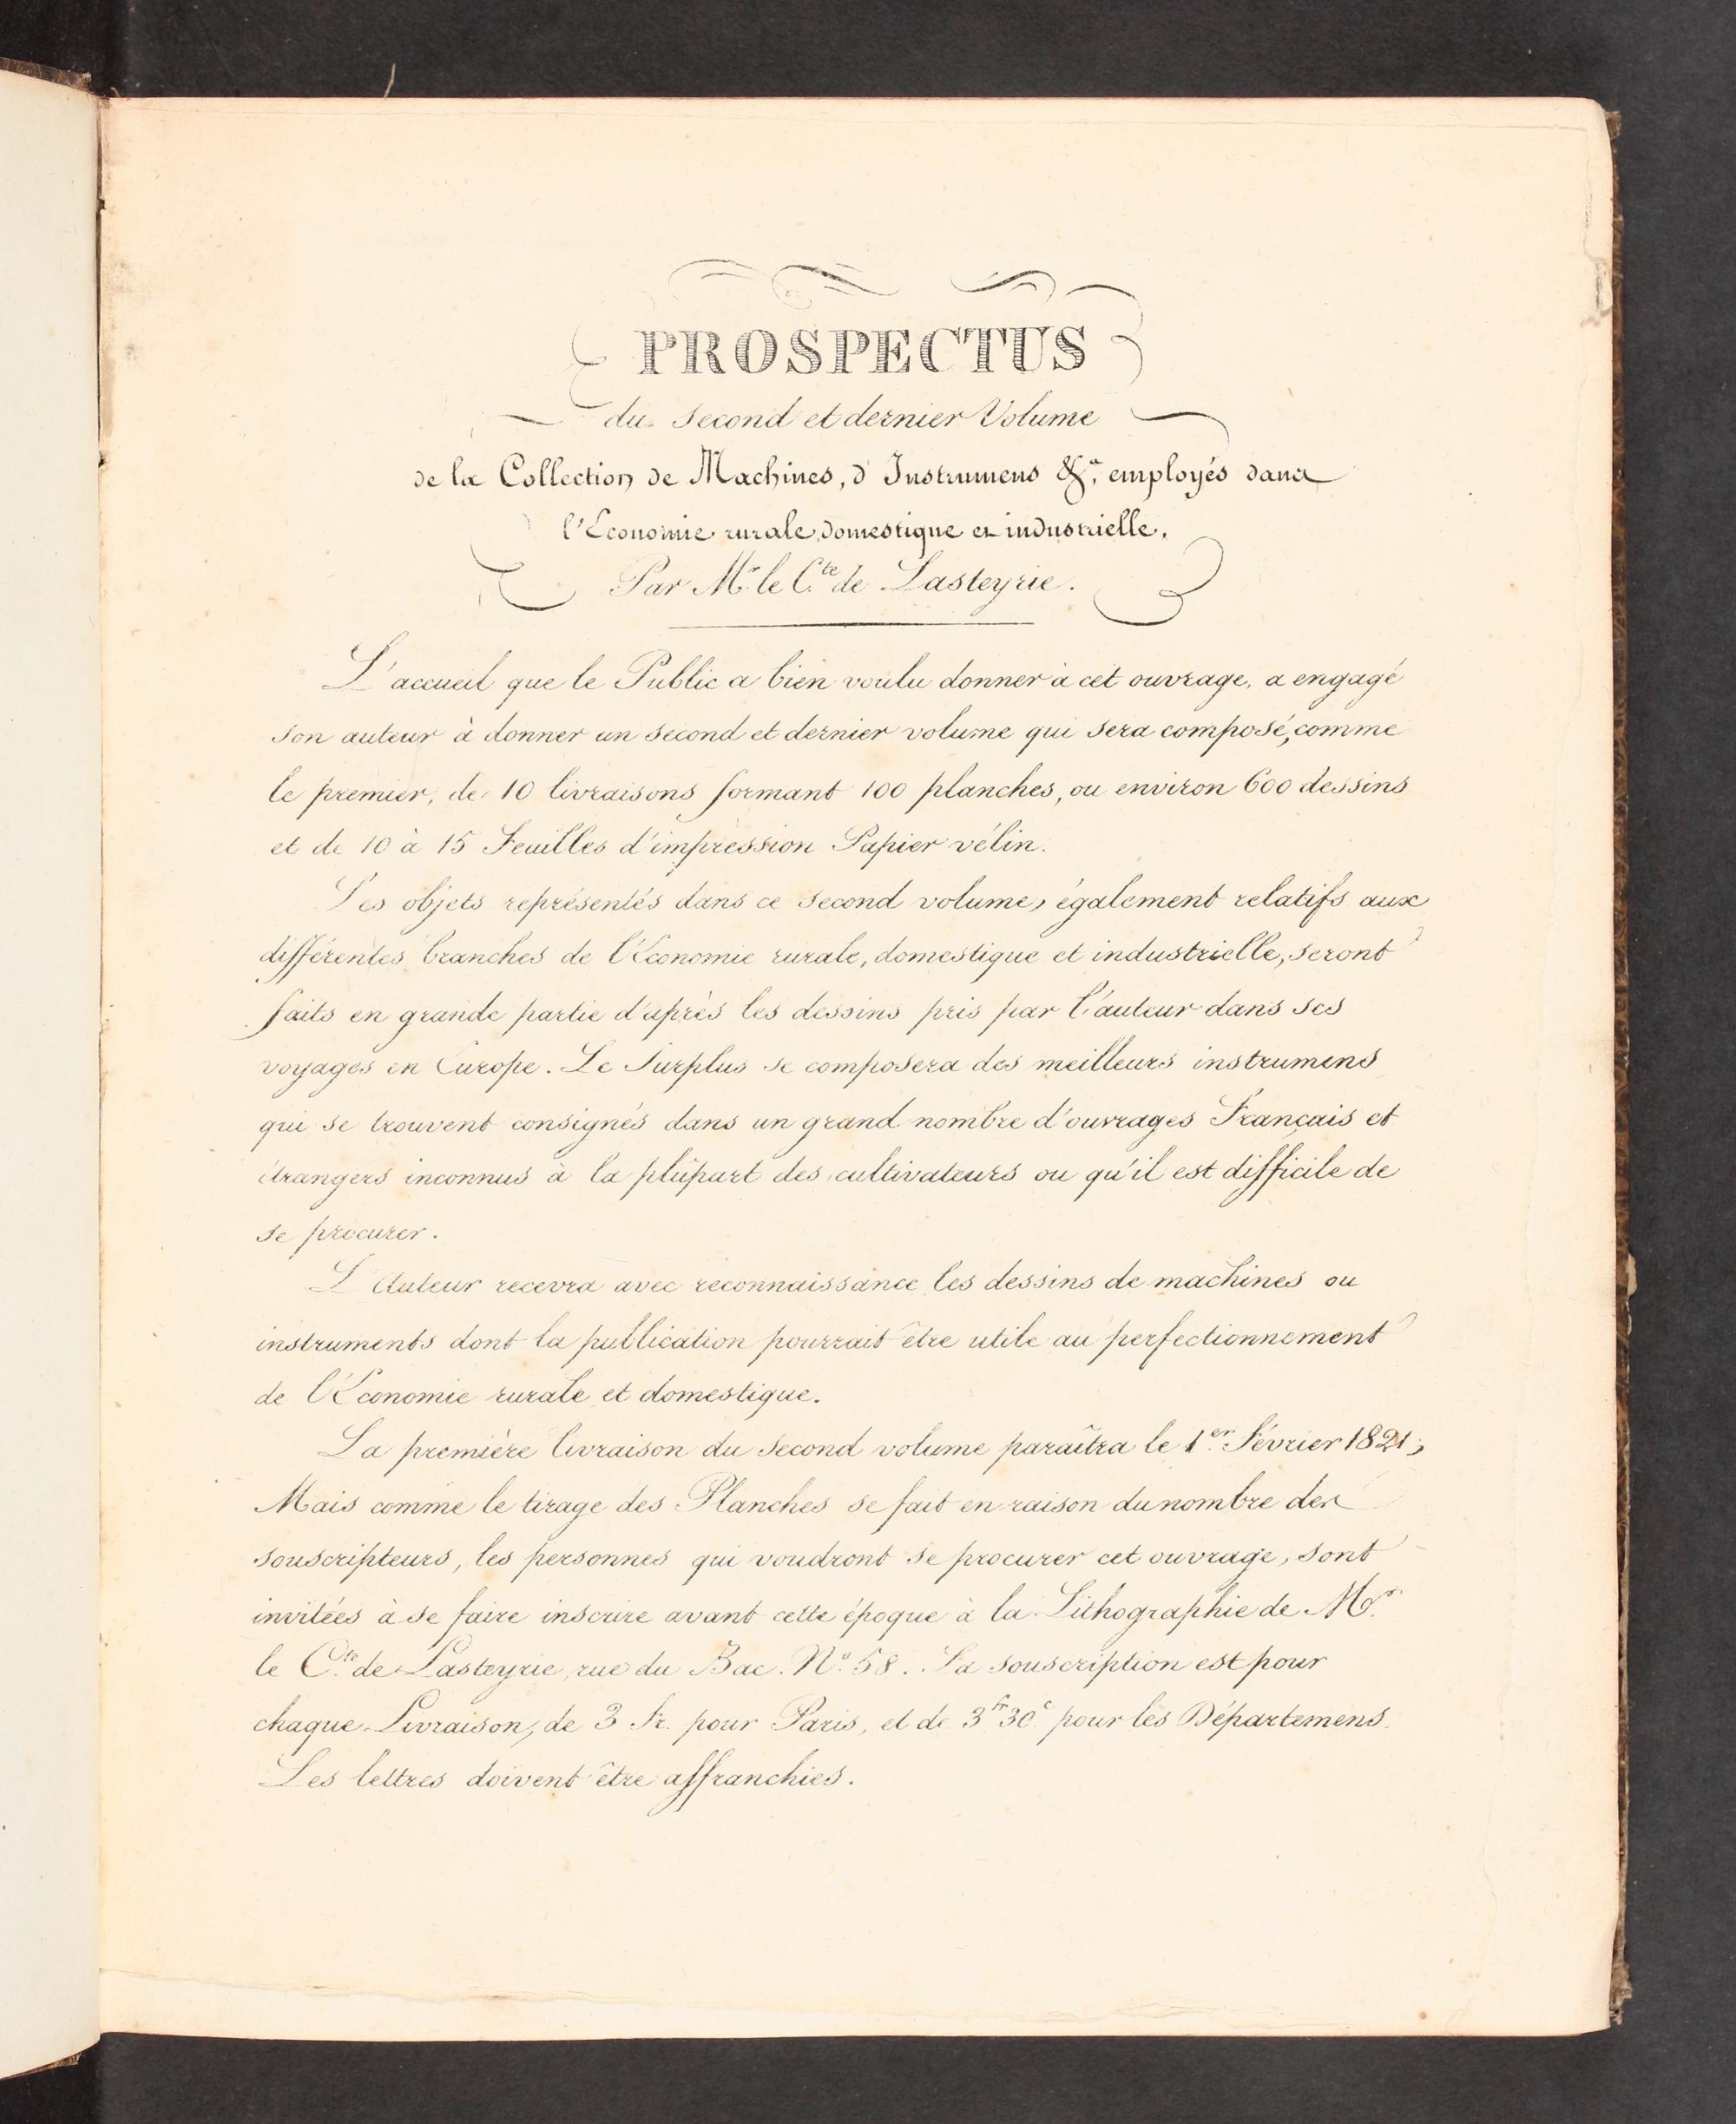 PROSPECTUS
du second et dernier Volume
de la Collection de Machines, d'Instrumens &.a employés dans
l'Économie rurale, domestique et industrielle.
Par Mr le C.te de Lasteyrie.
L'accueil que le Public a bien voulu donner à cet ouvrage, a engagé
son auteur à donner un second et dernier volume qui sera composé, comme
le premier, de 10 livraisons formant 100 planches, ou environ 600 dessins
et de 10 à 15 Feuilles d'impression Papier vélin.
Les objets représentés dans ce second volume, également relatifs aux
différentes branches de l'Économie rurale, domestique et industrielle, seront
faits en grande partie d'après les dessins pris par l'auteur dans ses
voyages en Europe. Le Surplus se composera des meilleurs instrumens
qui se trouvent consignés dans un grand nombre d'ouvrages Français et
étrangers inconnus à la plûpart des cultivateurs ou qu'il est difficile de
se procurer.
L'Auteur recevra avec reconnaissance les dessins de machines ou
instruments dont la publication pourrait être utile au perfectionnement
de l'Économie rurale et domestique.
La première livraison du second volume paraîtra le 1.er Février 1821;
Mais comme le tirage des Planches se fait en raison du nombre des
souscripteurs, les personnes qui voudront se procurer cet ouvrage, sont
invitées à se faire inscrire avant cette époque à la Lithographie de Mr.
le C.te de Lasteyrie, rue du Bac. N.o 58. La souscription est pour
chaque Livraison, de 3 Fr. pour Paris, et de 3.fr 30.c pour les Départemens.
Les lettres doivent être affranchies.